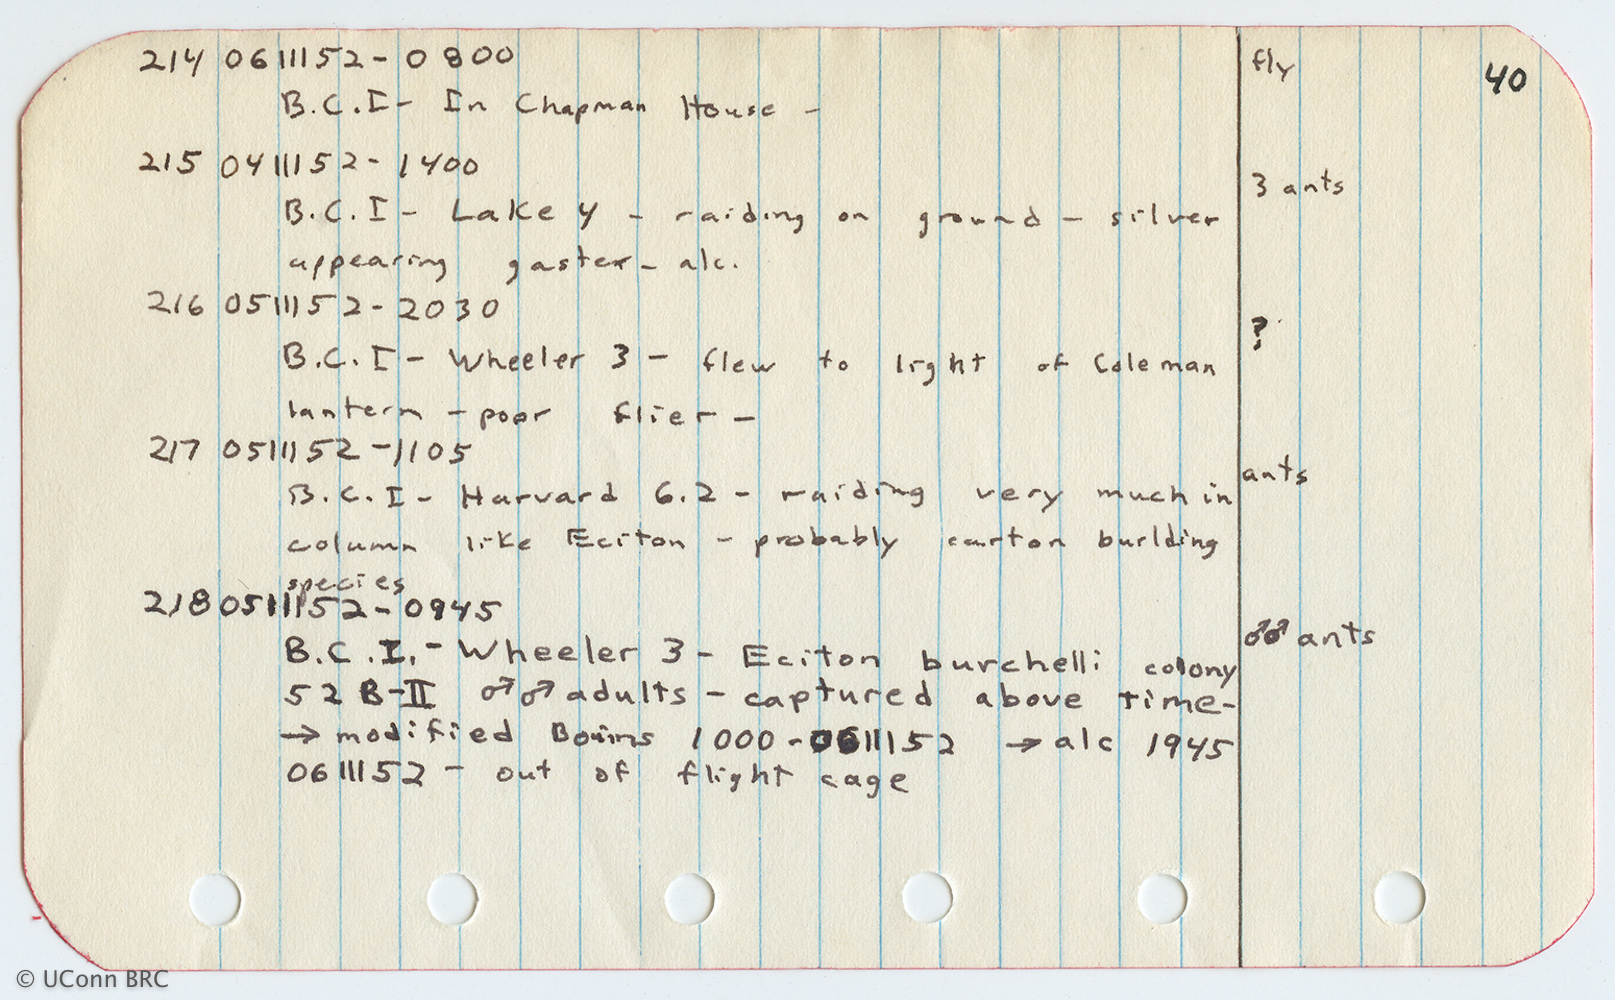 40
214 0611152 - 0800 fly
B.C.I - In Chapman House -
215 0411152 - 1400 3 ants
B.C.I - Lake 4 - raiding on ground - silver
appearing gaster - alc.
216 0511152 - 2030 ?
B.C.I - Wheeler 3 - flew to light of Coleman
lantern - poor flier -
217 0511152 - 1105 ants
B.C.I - Harvard 6.2 - raiding very much in
column like Eciton - probably carton building
species
218 0511152 - 0945 ♂♂ ants
B.C.I. - Wheeler 3 - Eciton burchelli colony
52 B-II ♂♂ adults - captured above time -
→ modified Bouins 1000 - 0611152 → alc 1945
0611152 - out of flight cage
© UConn BRC